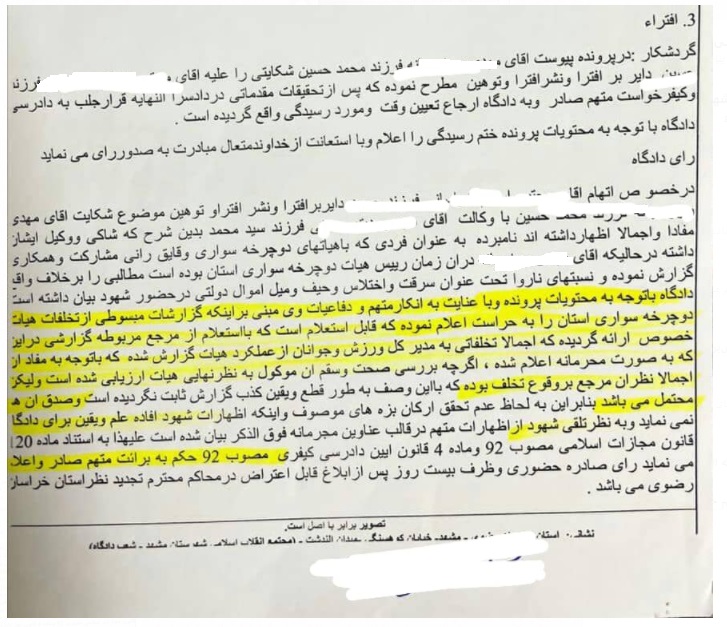 3. افتراء
گردشکار :درپرونده پیوست آقای فرزند محمد حسین شکایتی را علیه آقای فرزند
دایر بر افترا ونشرافترا وتوهین مطرح نموده که پس ازتحقیقات مقدماتی دردادسرا النهایه قرارجلب به دادرسی
وکیفرخواست متهم صادر وبه دادگاه ارجاع تعیین وقت ومورد رسیدگی واقع گردیده است .
دادگاه با توجه به محتویات پرونده ختم رسیدگی را اعلام وبا استعانت ازخداوندمتعال مبادرت به صدوررای می نماید
رای دادگاه
درخصو ص اتهام دایربرافترا ونشر افتراو توهین موضوع شکایت آقای مهدی
فرزند محمد حسین با وکالت آقای فرزند سید محمد بدین شرح که شاکی ووکیل ایشان
مفادا واجمالا اظهارداشته اند نامبرده به عنوان فردی که باهیاتهای دوچرخه سواری وقایق رانی مشارکت وهمکاری
داشته درحالیکه آقای دران زمان رییس هیات دوچرخه سواری استان بوده است مطالبی را برخلاف واقع
گزارش نموده و نسبتهای ناروا تحت عنوان سرقت واختلاس وحیف ومیل اموال دولتی درحضور شهود بیان داشته است
دادگاه باتوجه به محتویات پرونده وبا عنایت به انکارمتهم و دفاعیات وی مبنی براینکه گزارشات مبسوطی ازتخلفات هیات
دوچرخه سواری استان را به حراست اعلام نموده که قابل استعلام است که بااستعلام از مرجع مربوطه گزارشی دراین
خصوص ارائه گردیده که اجمالا تخلفاتی به مدیر کل ورزش وجوانان ازعملکرد هیات گزارش شده که باتوجه به مفاد ان
که به صورت محرمانه اعلام شده ، اگرچه بررسی صحت وسقم ان موکول به نظرنهایی هیات ارزیابی شده است ولیکن
اجمالا نظران مرجع بروقوع تخلف بوده که بااین وصف به طور قطع ویقین کذب گزارش ثابت نگردیده است وصدق ان
محتمل می باشد بنابراین به لحاظ عدم تحقق ارکان بزه های موصوف واینکه اظهارات شهود افاده علم ویقین برای دادگاه
نمی نماید وبه نظرتلقی شهود ازاظهارات متهم درقالب عناوین مجرمانه فوق الذکر بیان شده است علیهذا به استناد ماده 120
قانون مجازات اسلامی مصوب 92 وماده 4 قانون ایین دادرسی کیفری مصوب 92 حکم به برائت متهم صادر واعلام
می نماید رای صادره حضوری وظرف بیست روز پس ازابلاغ قابل اعتراض درمحاکم محترم تجدید نظراستان خراسان
رضوی می باشد .
تصویر برابر با اصل است.
نشانی: استان